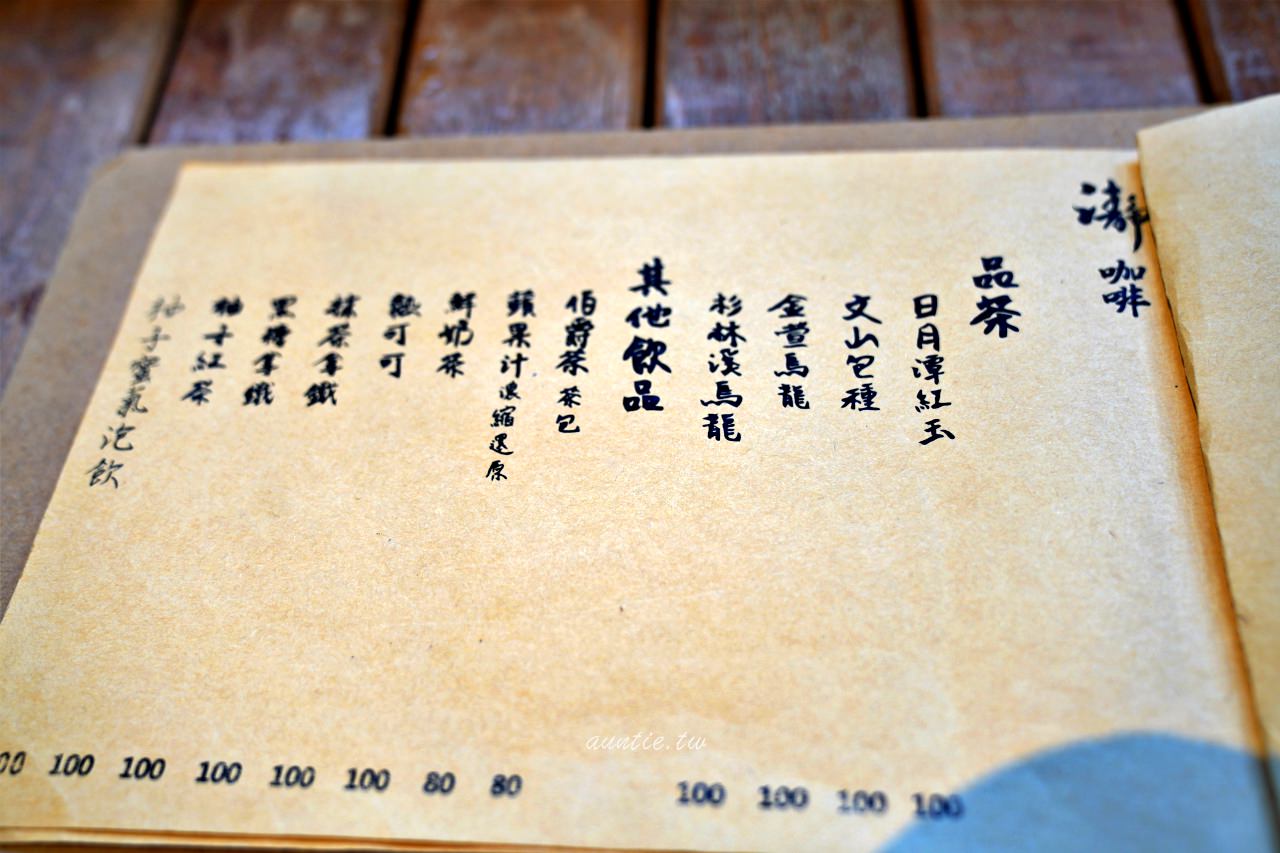 瀞咖啡
品茶
日月潭紅玉 100
文山包種 100
金萱烏龍 100
杉林溪烏龍 100
其他飲品
伯爵茶 茶包 80
蘋果汁 濃縮還原 80
鮮奶茶 100
熱可可 100
抹茶拿鐵 100
黑糖拿鐵 100
柚子紅茶 100
柚子蜜氣泡飲 00
auntie.tw